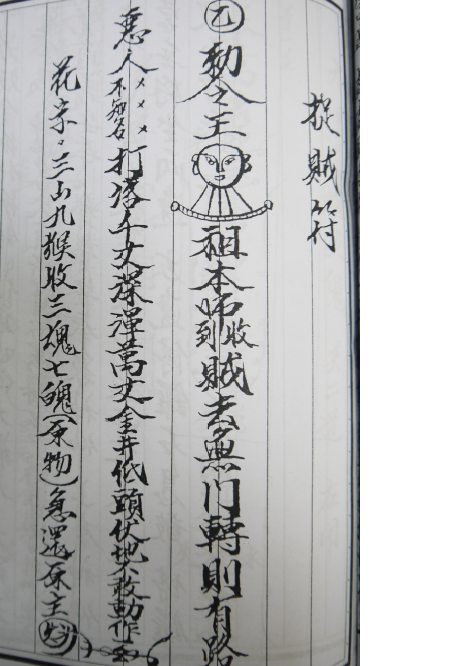 捉賊符
勅令王祖本师收到賊去無門轉則有路
惡人×××不知名打落千丈深潭萬丈金井低頭伏地不敢動作
花字、三山九猴收三魂七魄(原物)急還原主